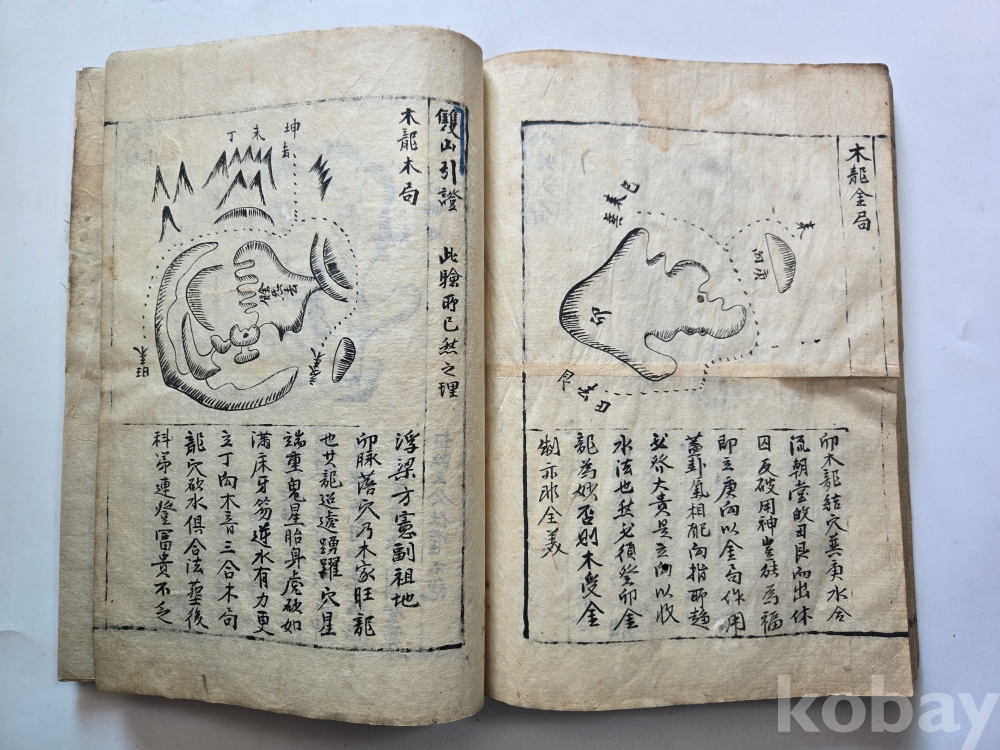 木龍金局
巽巳來
來
向庚
卯
丑去
卯木龍結穴巽庚水合
流朝堂的丑艮而出休
囚反破用神豈能為福
即立庚向以金局作用
蓋卦氣相配向指所趨
發大貴是立向以收
水法也然必須癸卯金
龍為妙否則木受金
制亦非全美
雙山引證 此驗所已然之理
木龍木局
坤去
未
丁
浮梁方憲副祖地
卯脉落穴乃木家旺龍
也其龍迢遞踴躍穴星
端重鬼星胎身虎砂如
滿床牙笏逆水有力更
立丁向木音三合木局
龍穴砂水俱合法塟後
科第連登冨貴不乏
kobay